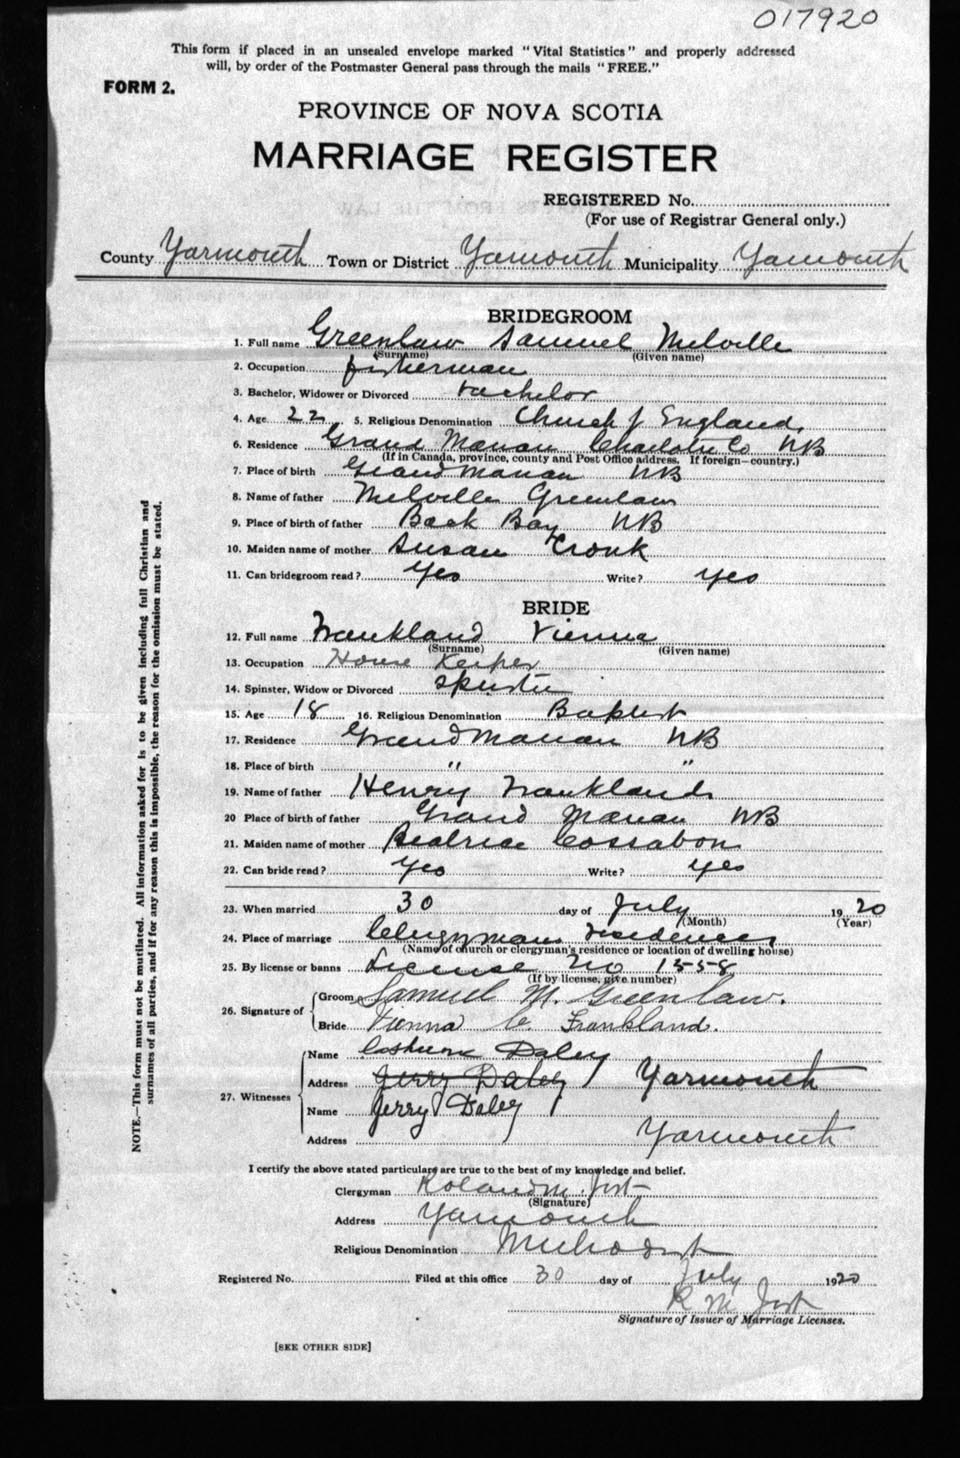 017920
This form if placed in an unsealed envelope marked "Vital Statistics" and properly addressed
will, by order of the Postmaster General pass through the mails "FREE."
FORM 2.
PROVINCE OF NOVA SCOTIA
MARRIAGE REGISTER
REGISTERED No.
(For use of Registrar General only.)
County Yarmouth Town or District Yarmouth Municipality Yarmouth
BRIDEGROOM
1. Full name Greenlaw Samuel Melville
(Surname) (Given name)
2. Occupation fisherman
3. Bachelor, Widower or Divorced bachelor
4. Age 22 5. Religious Denomination Church of England
6. Residence Grand Manan Charlotte Co NB
(If in Canada, province, county and Post Office address. If foreign—country.)
7. Place of birth Grand Manan NB
8. Name of father Melville Greenlaw
9. Place of birth of father Back Bay NB
10. Maiden name of mother Susan Cronk
11. Can bridegroom read? Yes Write? yes
BRIDE
12. Full name Frankland Vienna
(Surname) (Given name)
13. Occupation House Keeper
14. Spinster, Widow or Divorced spinster
15. Age 18 16. Religious Denomination Baptist
17. Residence Grand Manan NB
18. Place of birth " "
19. Name of father Henry Frankland
20 Place of birth of father Grand Manan NB
21. Maiden name of mother Beatrice Cossabon
22. Can bride read? Yes Write? Yes
23. When married 30 day of July 1920
(Month) (Year)
24. Place of marriage Clergymans residence
(Name of church or clergyman's residence or location of dwelling house)
25. By license or banns License No 1558
(If by license, give number)
26. Signature of
Groom Samuel M. Greenlaw.
Bride Vienna C Frankland.
27. Witnesses
Name Daley
Address Jerry Daley Yarmouth
Name Jerry Daley
Address Yarmouth
I certify the above stated particulars are true to the best of my knowledge and belief.
Clergyman Roland M. Jost
(Signature)
Address Yarmouth
Religious Denomination Methodist
Registered No. Filed at this office 30 day of July 1920
R M Jost
Signature of Issuer of Marriage Licenses.
[SEE OTHER SIDE]
NOTE.—This form must not be mutilated. All information asked for is to be given including full Christian and
surnames of all parties, and if for any reason this is impossible, the reason for the omission must be stated.